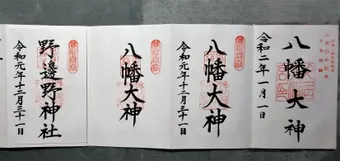 八幡大神
令和二年一月一日
八幡大神
令和元年十二月三十一日
八幡大神
野邊野神社
令和元年十二月三十一日